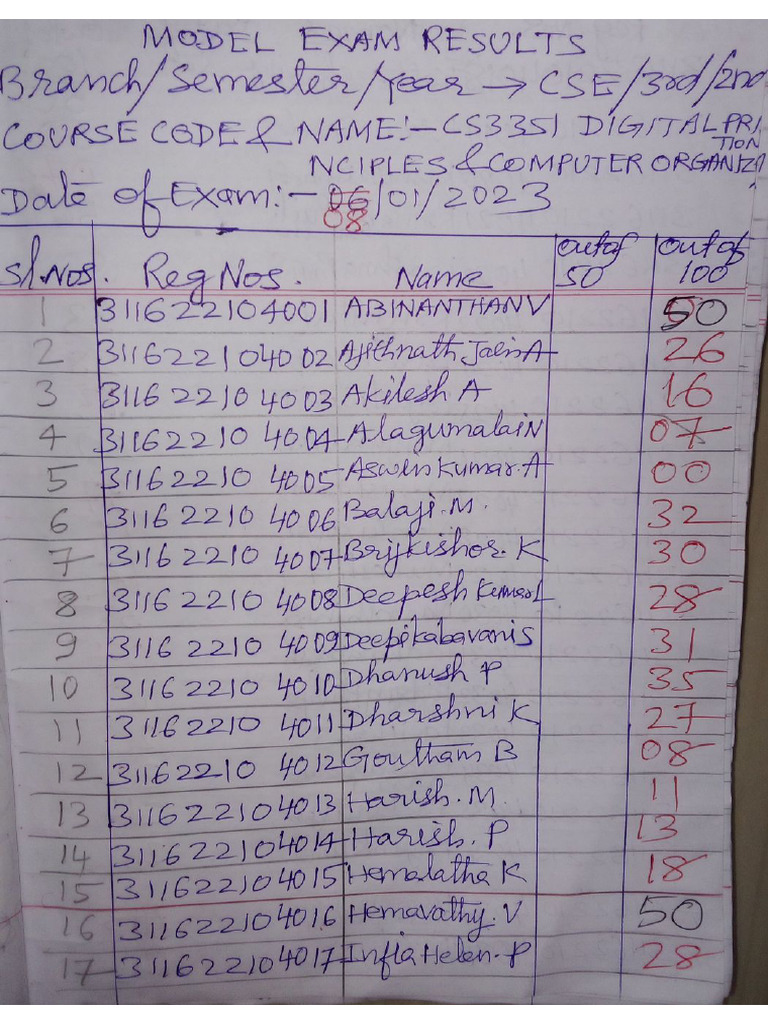 MODEL EXAM RESULTS
Branch/Semester/Year → CSE/3rd/2nd
COURSE CODE & NAME:- CS3351 DIGITAL PRI
NCIPLES & COMPUTER ORGANIZA
TION
Date of Exam:- 08/01/2023
Sl.Nos. Reg Nos. Name out of 50 out of 100
1 311622104001 ABINANTHAN V 50
2 311622104002 Ajithnath Jain A 26
3 311622104003 Akilesh A 16
4 311622104004 Alagumalai N 07
5 311622104005 Aswin Kumar.A 00
6 311622104006 Balaji.M. 32
7 311622104007 Brijkishor.K 30
8 311622104008 Deepesh Kumar L 28
9 311622104009 Deepikabavani S 31
10 311622104010 Dhanush P 35
11 311622104011 Dharshni K 27
12 311622104012 Goutham B 08
13 311622104013 Harish.M. 11
14 311622104014 Harish.P 13
15 311622104015 Hemalatha K 18
16 311622104016 Hemavathy.V 50
17 311622104017 Infia Helen.P 28